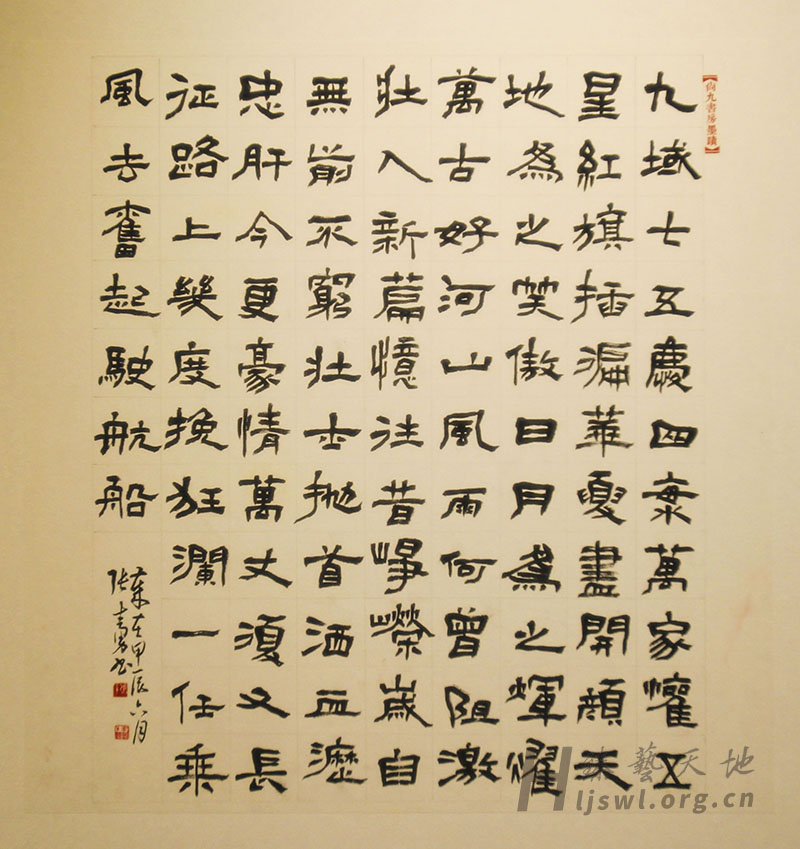 尚九書房墨蹟
九域七五慶四萬家懽五
星紅旗插遍華夏盡開顏天
地為之笑傲日月為之輝耀
萬古好河山風雨何曾阻激
壯入新篇憶往昔崢嶸歲自
無前不窮壯士拋首洒血瀝
忠肝今更豪情萬丈須又長
征路上幾度挽狂瀾一任乘
風去奮起駛航船
歲在甲辰六月
張書
藝天地
ljswl.org.cn